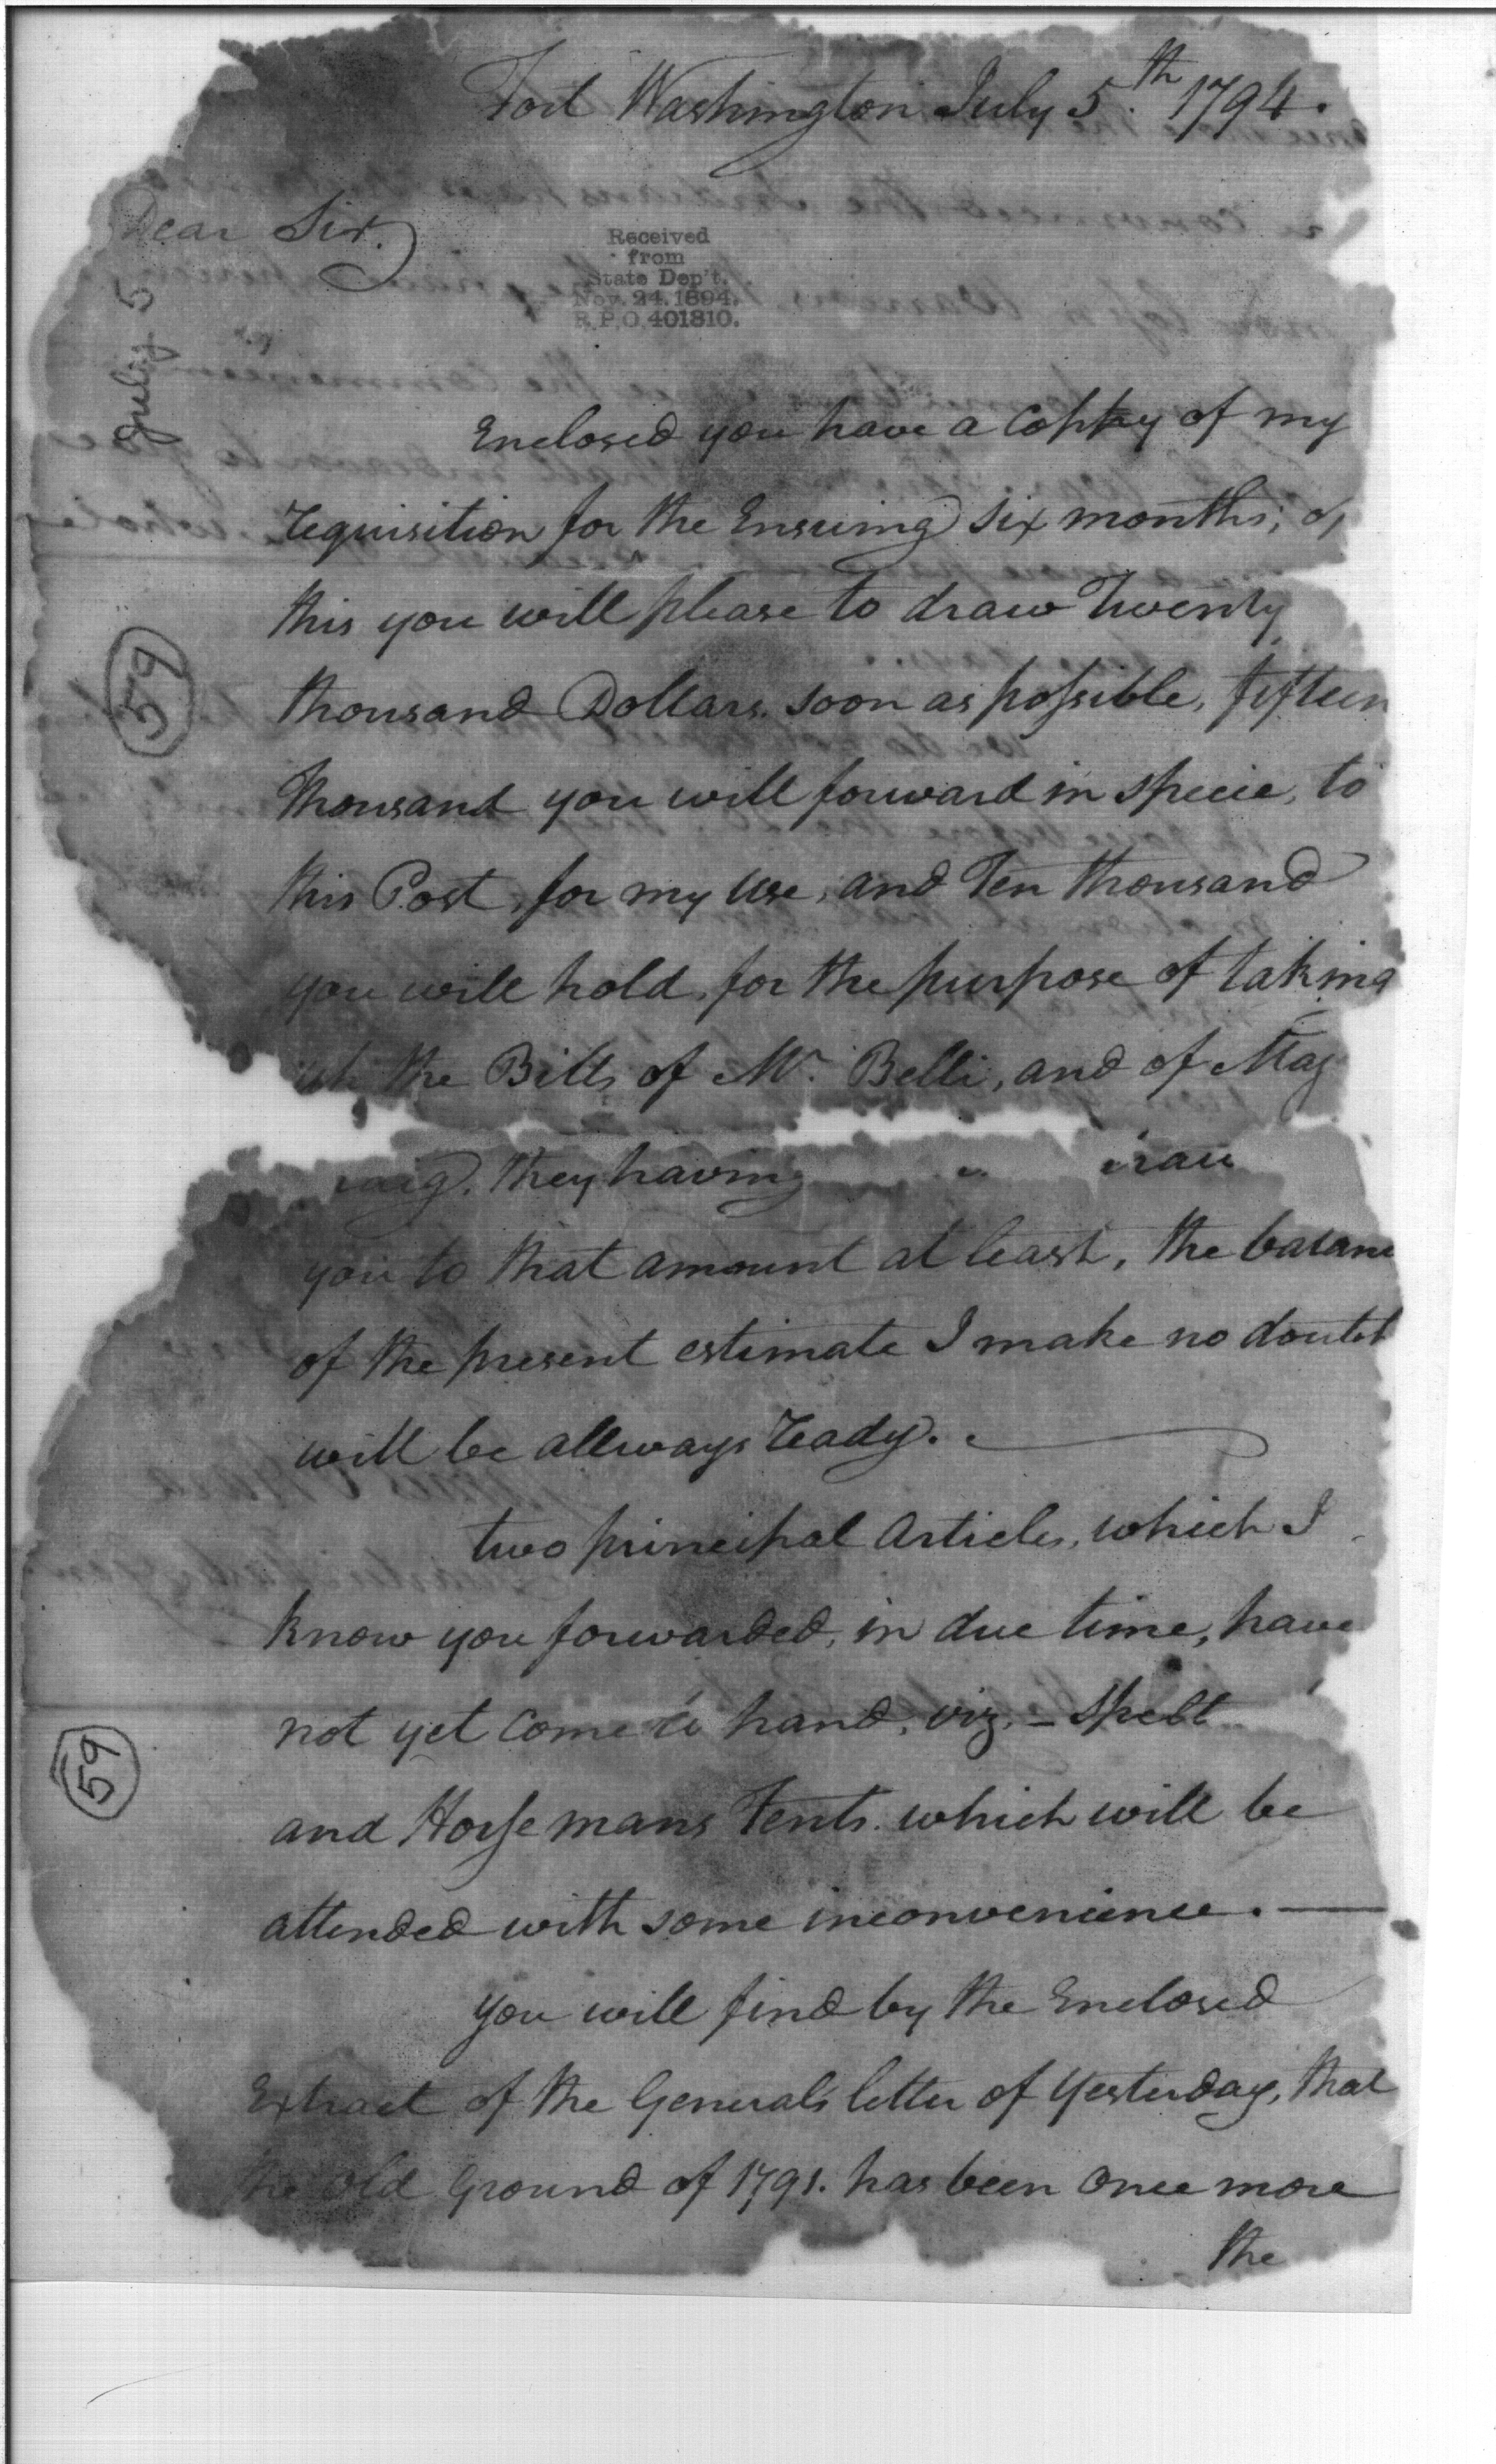 Fort Washington July 5th 1794.
Dear Sir.
Received
from
State Dep't.
Nov. 24. 1894.
R.P.O. 401810.
July 5
Enclosed you have a Coppy of my
requisition for the Ensuing six months; of
this you will please to draw Twenty
thousand Dollars soon as possible, fifteen
Thousand you will forward in specie, to
this Post, for my use, and Ten thousand
you will hold, for the purpose of taking
up the Bills of Mr. Belli, and of Maj
they having
you to that amount at least, the balance
of the present estimate I make no doubt
will be allways ready.
two principal Articles, which I
know you forwarded, in due time, have
not yet come to hand, viz. - Spelt
and Horsemans Tents. which will be
attended with some inconvenience. —
you will find by the Enclosed
Extract of the Generals letter of Yesterday, that
the old Ground of 1791. has been once more
the
59
59